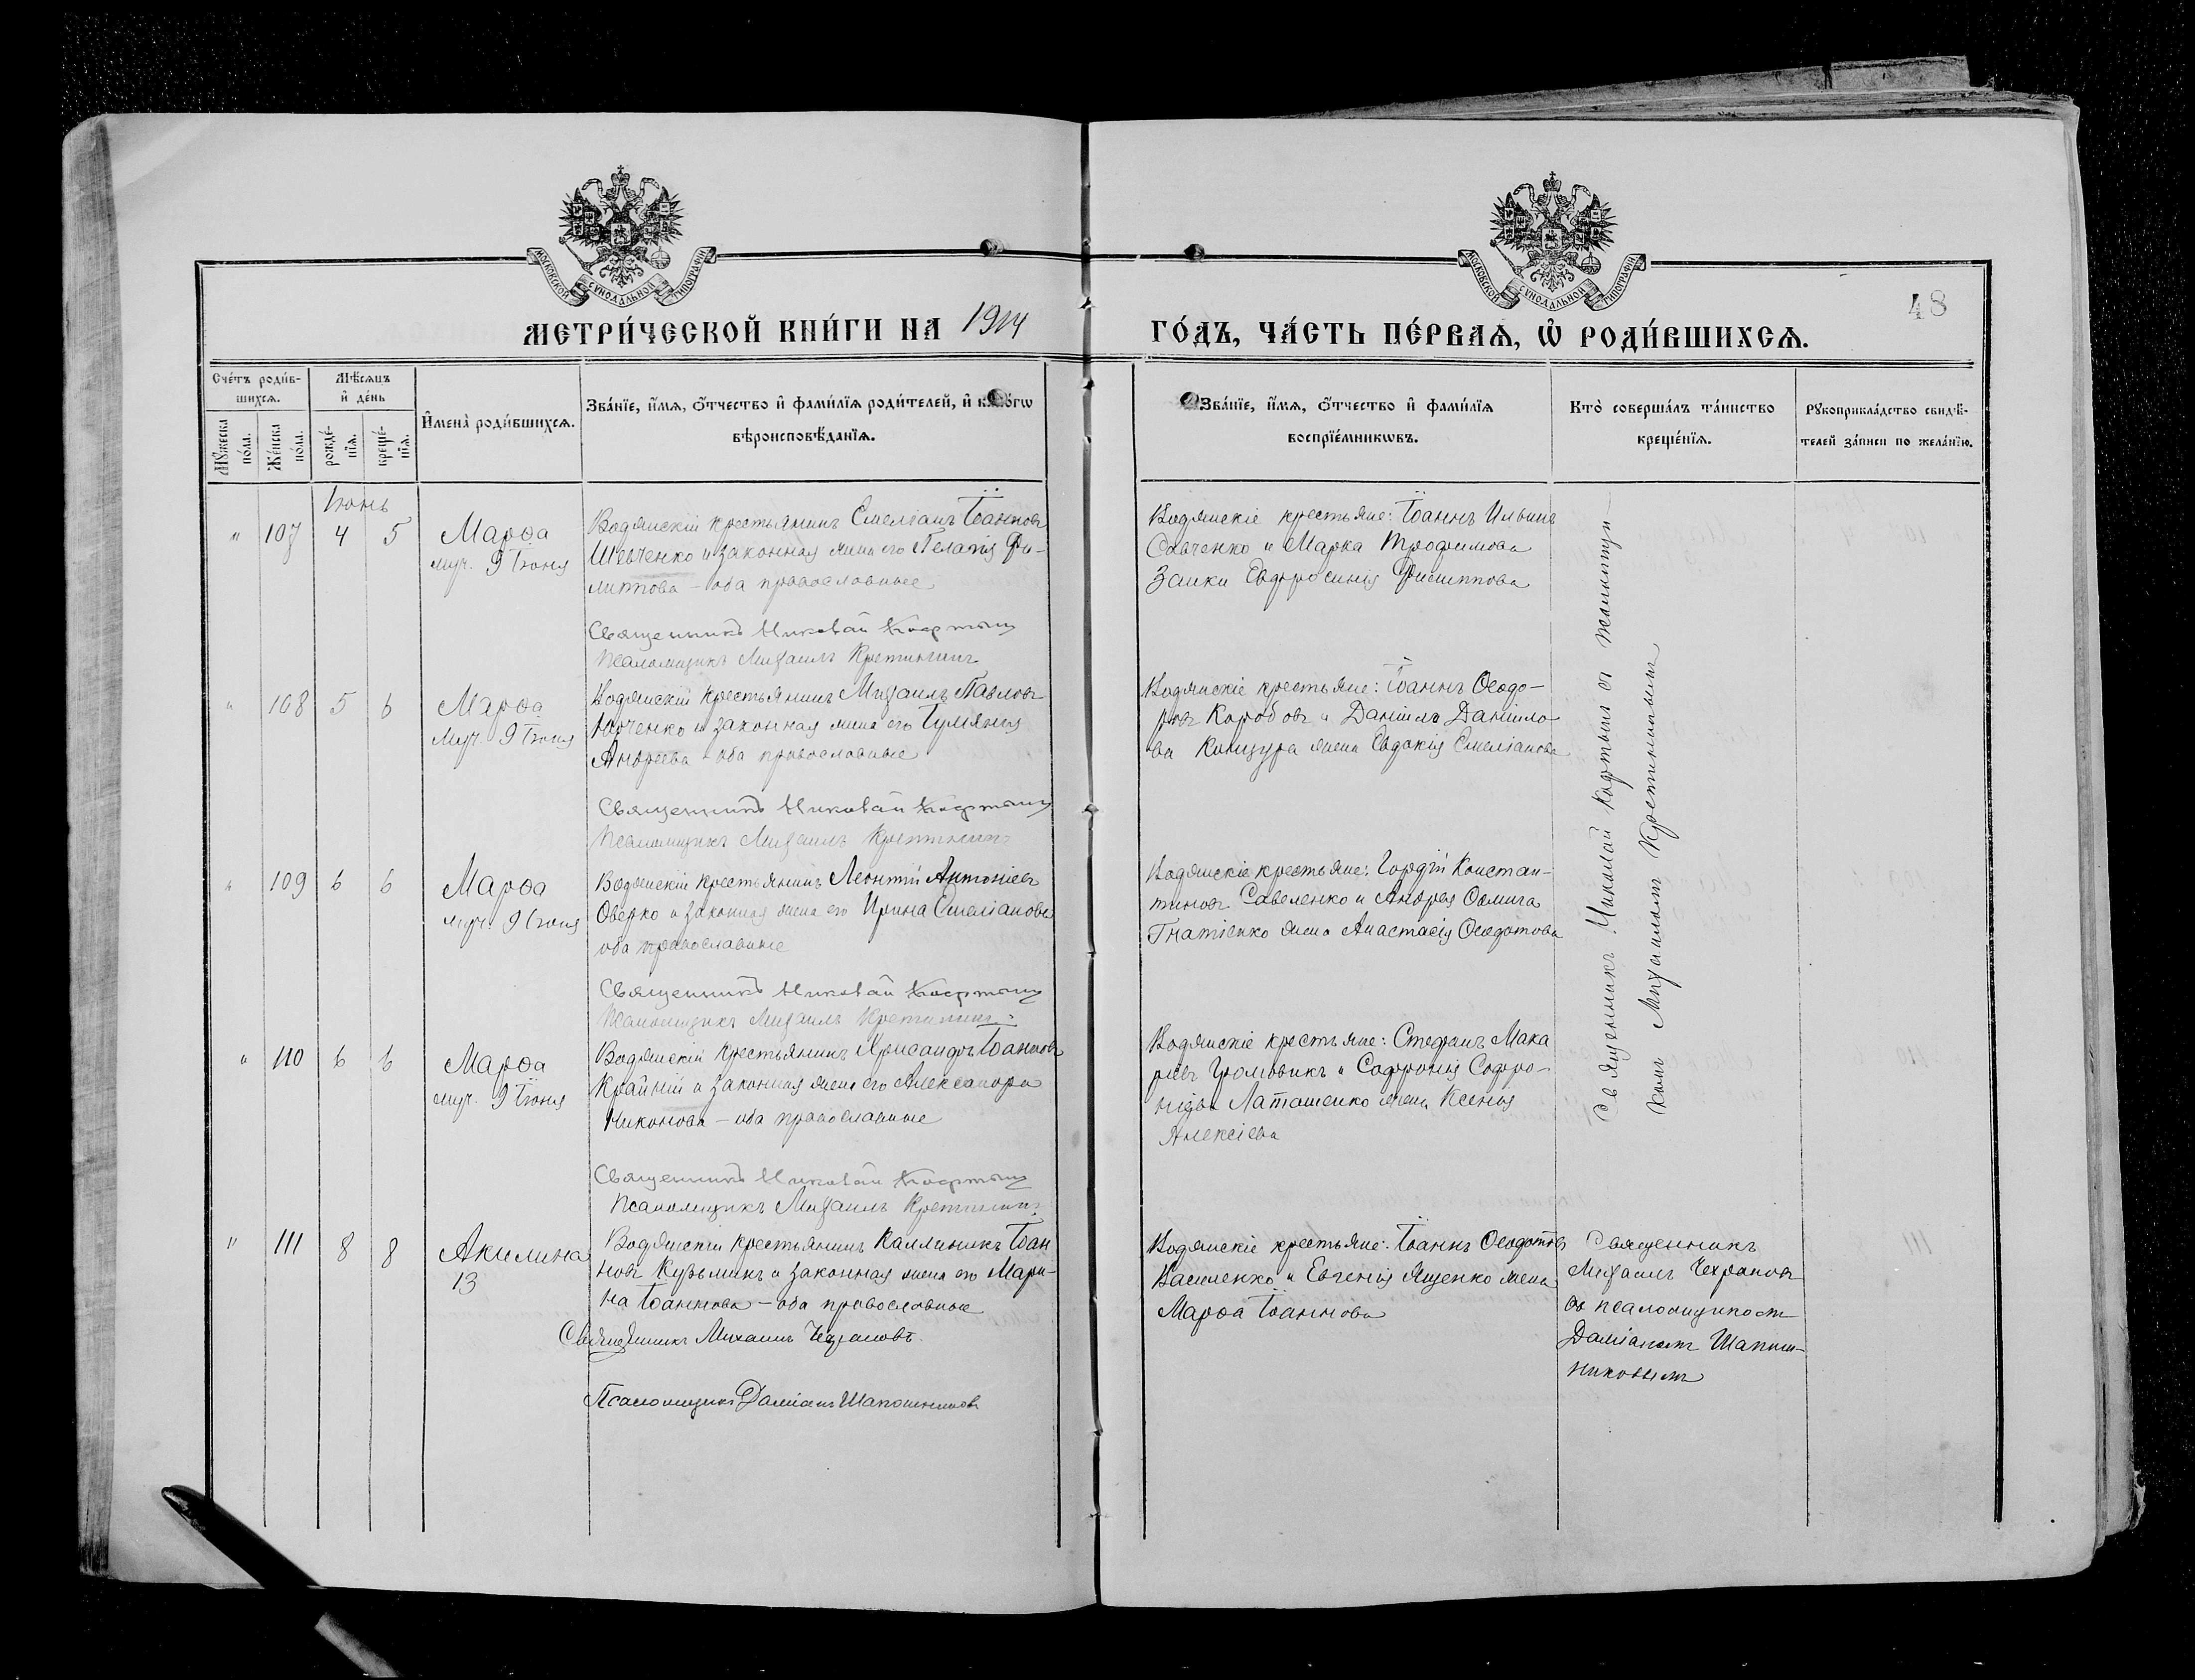 МОСКОВСКОЙ СУНОДАЛЬНОЙ ТИПОГРАФІИ
МОСКОВСКОЙ СУНОДАЛЬНОЙ ТИПОГРАФІИ
48
МЕТРИ́ЧЕСКОЙ КНИ́ГИ НА 1914 ГО́ДЪ, ЧА́СТЬ ПЕ́РВАѦ, Ѡ҆ РОДИ́ВШИХСѦ.
Сче́тъ роди́в-
шихсѧ.
Мꙋ́жеска по́ла.
Же́нска по́ла.
Мѣ́сѧцъ
и҆ де́нь
рожде́-
нїѧ.
креще́-
нїѧ.
И҆мена̀ роди́вшихсѧ.
Зва́нїе, и҆́мѧ, ѻ҆́тчество и҆ фами́лїѧ роди́телей, и҆ како́гѡ
вѣроисповѣ́данїѧ.
Зва́нїе, и҆́мѧ, ѻ҆́тчество и҆ фами́лїѧ
воспрїе́мникѡвъ.
Кто̀ соверша́лъ та́инство
креще́нїѧ.
Рꙋкоприкла́дство свидѣ́-
телей за́писи по жела́нїю.
Іюнь
" 107 4 5
Марѳа
муч. 9 Іюня
Водянскій крестьянинъ Емеліанъ Іоанновъ
Шевченко и законная жена его Пелагія Фи-
липпова – оба православные
Священникъ Николай
Псаломщикъ Михаилъ Кретининъ
Водянскіе крестьяне: Іоаннъ Ильинъ
Савченко и Марка Трофимова
Заики Евфросинія Филиппова
" 108 5 6
Марѳа
Муч. 9 Іюня
Водянскій крестьянинъ Михаилъ Павловъ
Юрченко и законная жена его Іуліанія
Андреева – оба православные
Священникъ Николай
Псаломщикъ Михаилъ Кретининъ
Водянскіе крестьяне: Іоаннъ Ѳеодо-
ровъ Коробовъ и Даніилъ Даніило-
ва жена Евдокія Емеліанова
" 109 6 6
Марѳа
муч. 9 Іюня
Водянскій крестьянинъ Леонтій Антоніевъ
Оверко и законная жена его Ирина Емеліанова
оба православные
Священникъ Николай
Псаломщикъ Михаилъ Кретининъ
Водянскіе крестьяне: Гордій Констан-
тиновъ Савеленко и Андрея
Гнатіенко жена Анастасія Ѳеодотова
" 110 6 6
Марѳа
муч. 9 Іюня
Водянскій крестьянинъ Хрисандръ Іоанновъ
Крайній и законная жена его Александра
Никонова – оба православные
Священникъ Николай
Псаломщикъ Михаилъ Кретининъ
Водянскіе крестьяне: Стефанъ Мака
ріевъ Громовикъ и Софронія Софро-
ніева Латашенко жена Ксенія
Алексіева
Священникъ Николай съ псаломщи-
комъ Михаиломъ Кретининымъ
" 111 8 8
Акилина
13
Водянскій крестьянинъ Каллиникъ Іоан
новъ Кузьминъ и законная жена его Мари-
на Іоаннова – оба православные
Священникъ Михаилъ Чехрановъ
Псаломщикъ Даміанъ Шапошниковъ
Водянскіе крестьяне: Іоаннъ Ѳеодотовъ
Василенко и Евгенія Ященко жена
Марѳа Іоаннова
Священникъ
Михаилъ Чехрановъ
съ псаломщикомъ
Даміаномъ Шапош-
никовымъ